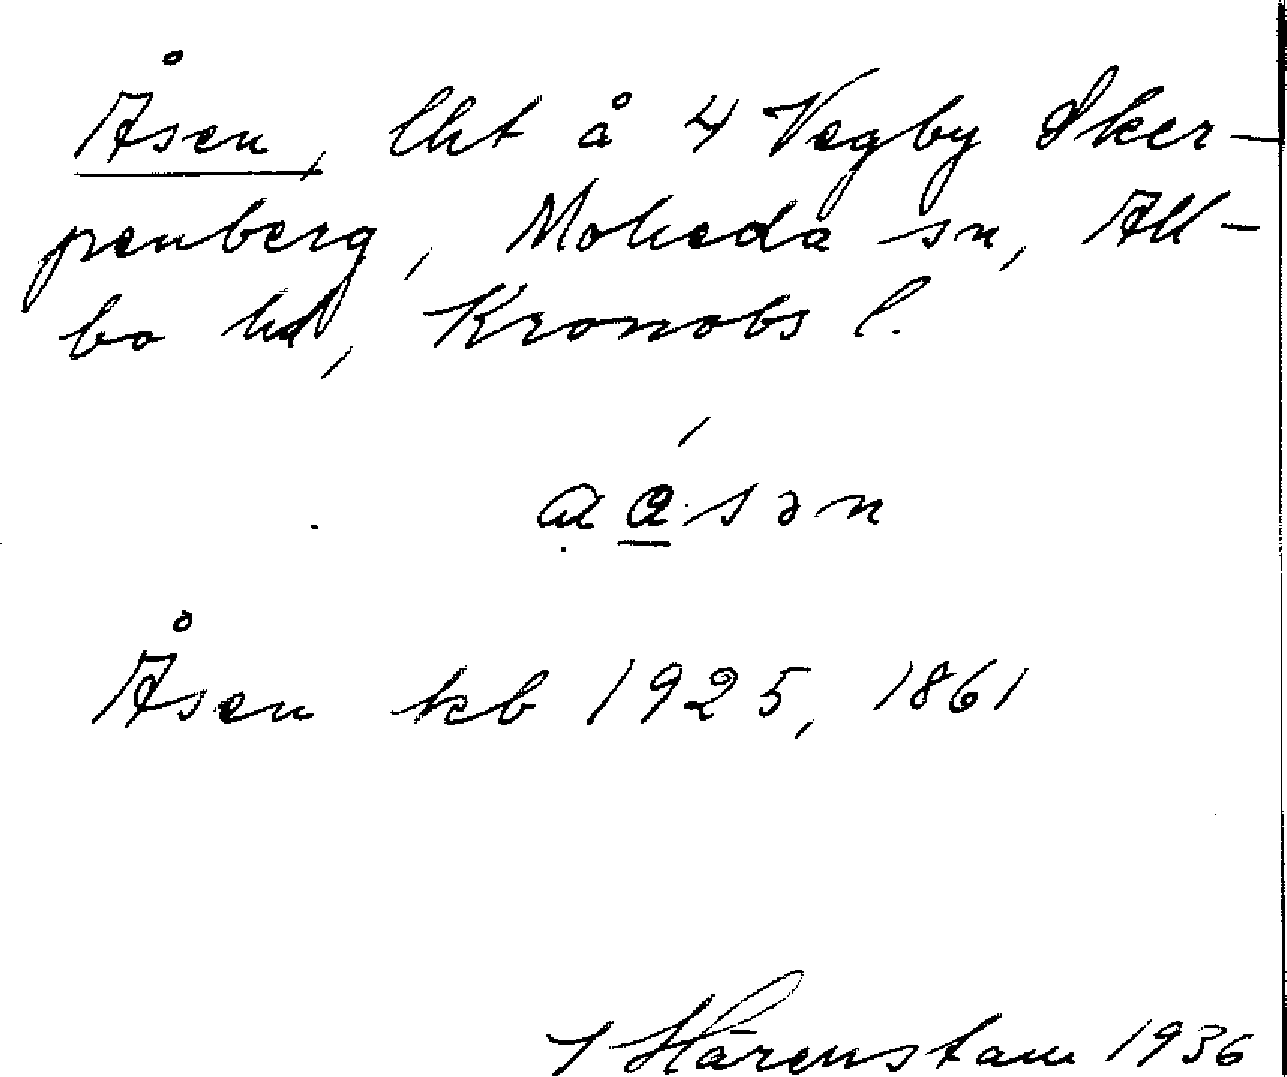 Åsen, lht å 4 Vegby Sker-
penberg, Moheda sn, All-
bo hd, Kronobs l.
Åsen kb 1925, 1861
Härenstam 1936